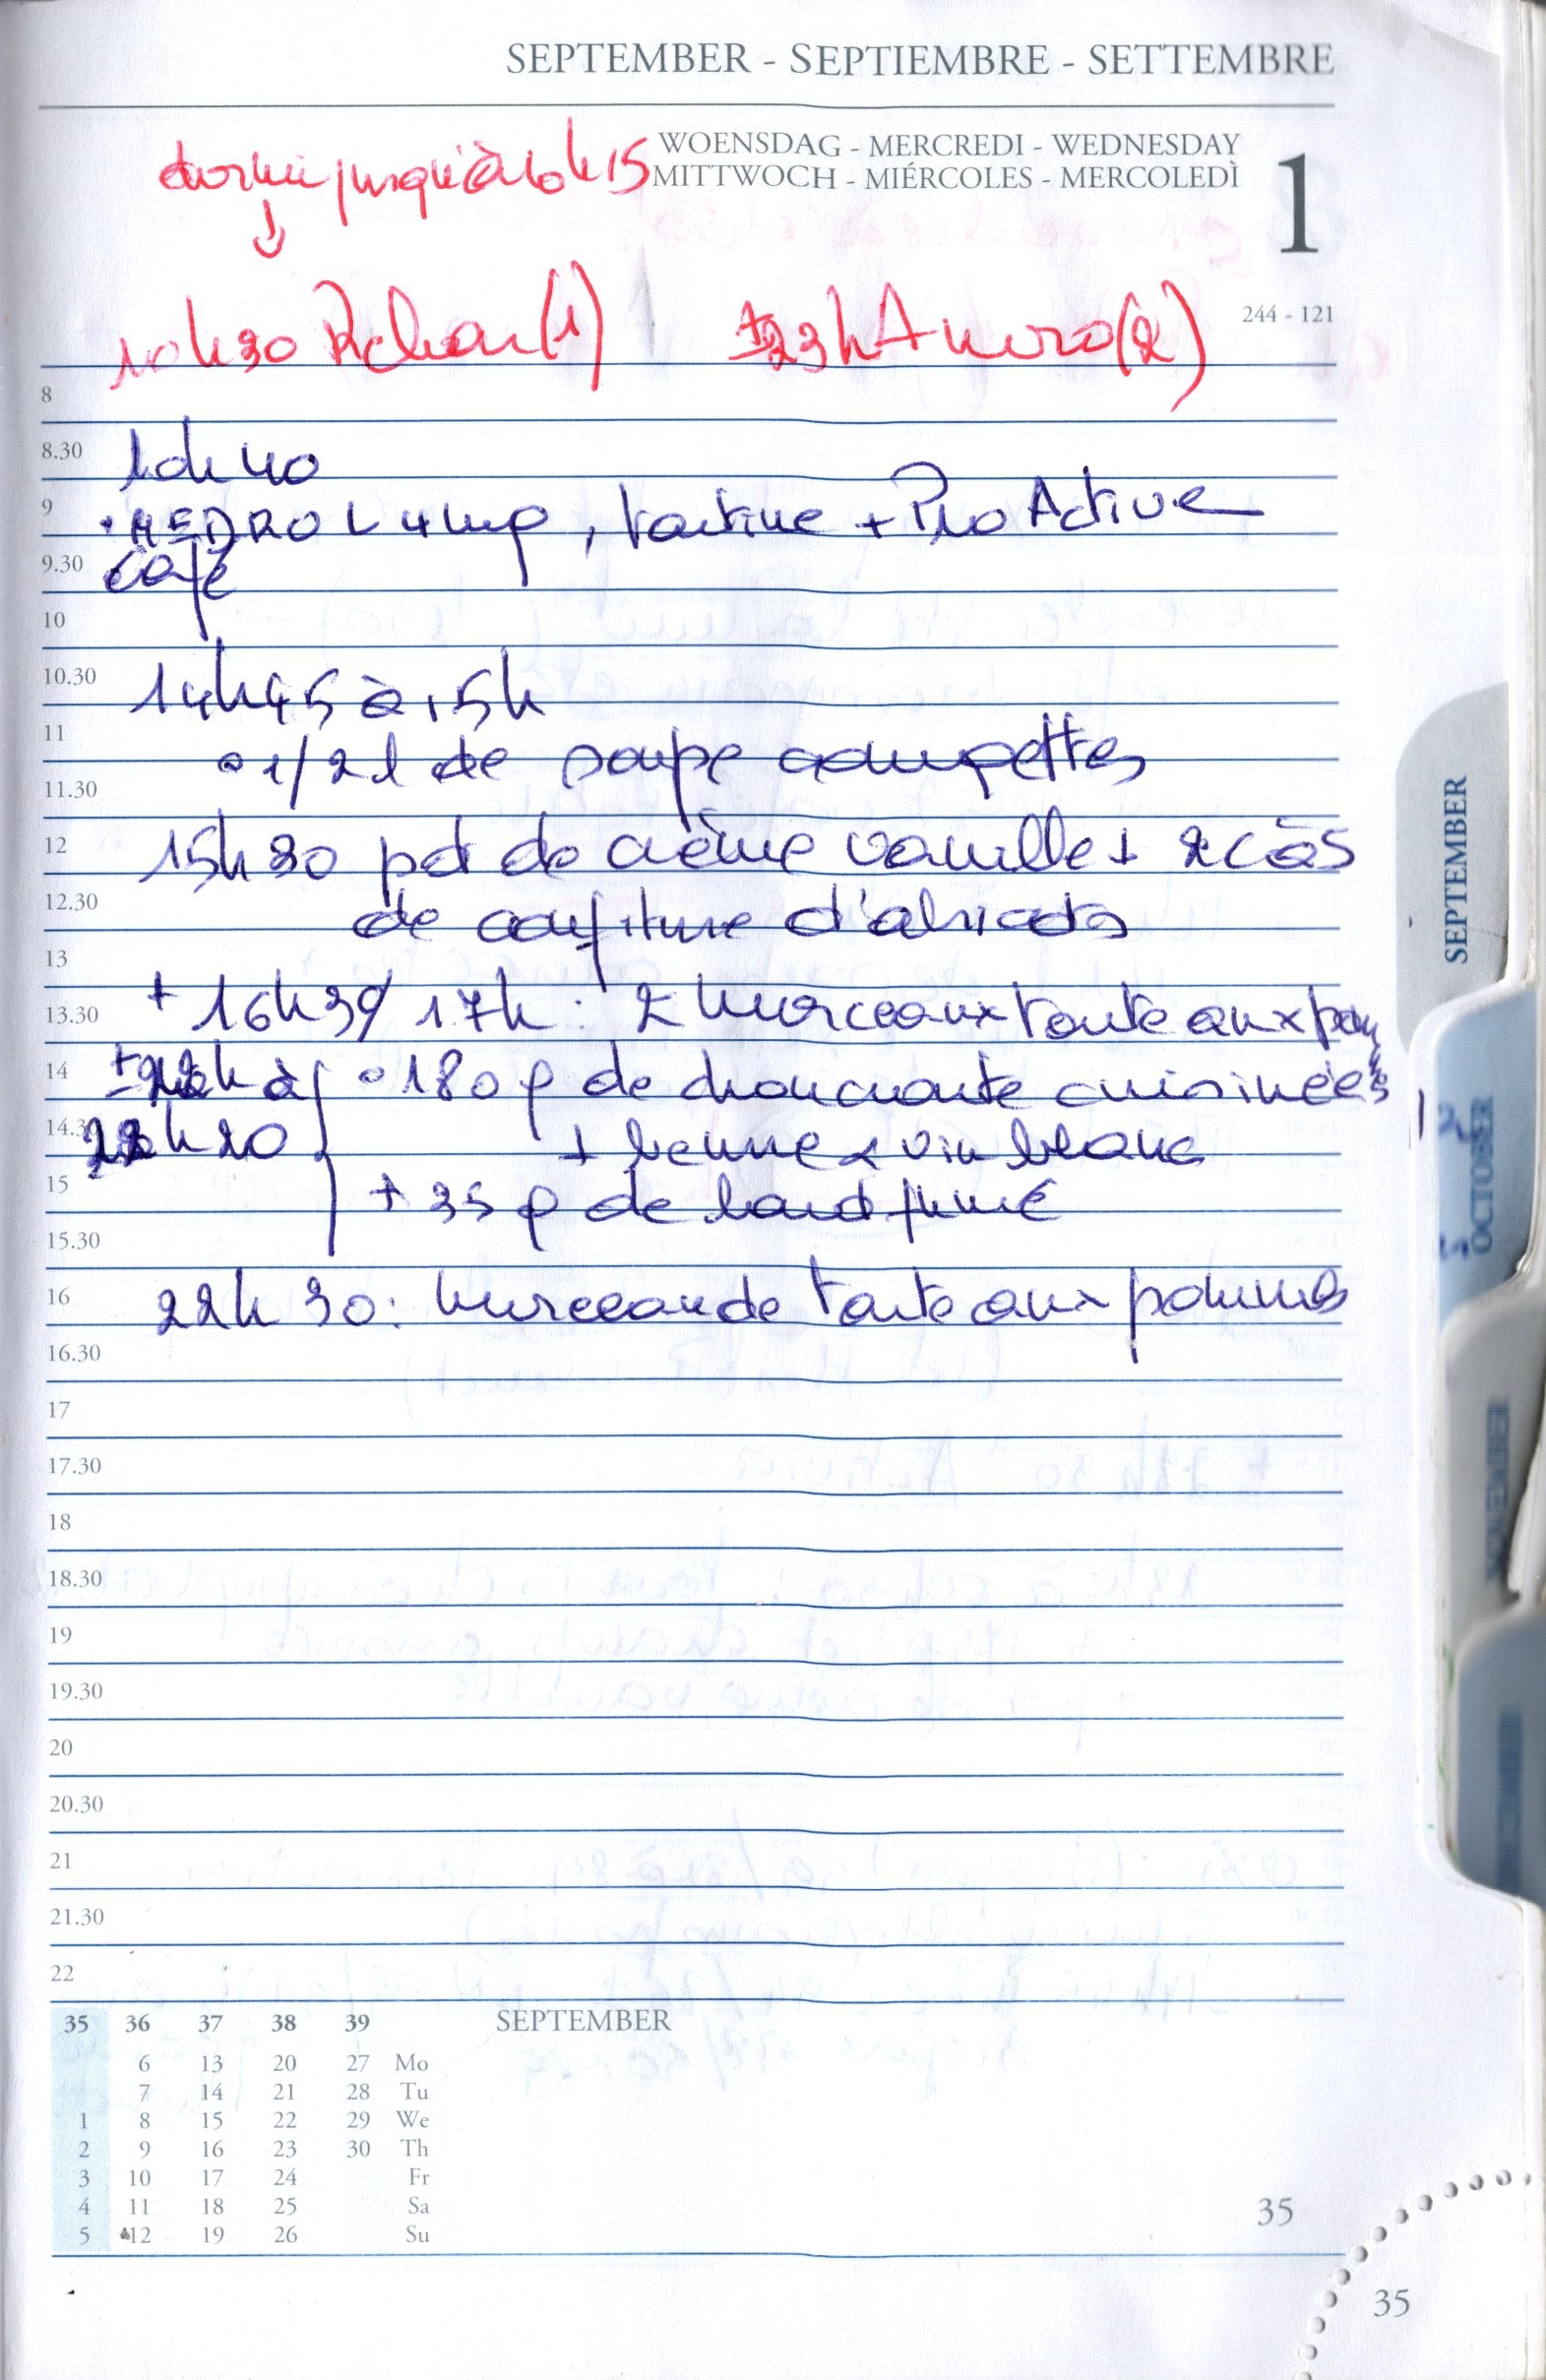 SEPTEMBER - SEPTIEMBRE - SETTEMBRE
WOENSDAG - MERCREDI - WEDNESDAY
MITTWOCH - MIÉRCOLES - MERCOLEDÌ
1
244 - 121
dormi jusqu'à 10h15
10h30 (1) ±23h (2)
8
8.30
10h40
9
• MEDROL 4mg, tartine + Pro Active
9.30
café
10
10.30
14h45 à 15h
11
° 1/2 l de soupe courgettes
11.30
12
15h30 pot de crème vanille + 2 càs
12.30
de confiture d'abricots
13
13.30
+ 16h30/17h : 2 morceaux tarte aux pommes
14
± 22h à ° 180 g de choucroute cuisinées
14.30
22h20 + beurre & vin blanc
15
+ 35 g de lard fumé
15.30
16
22h30 : morceau de tarte aux pommes
16.30
17
17.30
18
18.30
19
19.30
20
20.30
21
21.30
22
35 36 37 38 39 SEPTEMBER
6 13 20 27 Mo
7 14 21 28 Tu
1 8 15 22 29 We
2 9 16 23 30 Th
3 10 17 24 Fr
4 11 18 25 Sa
5 12 19 26 Su
35
35
SEPTEMBER
OCTOBER